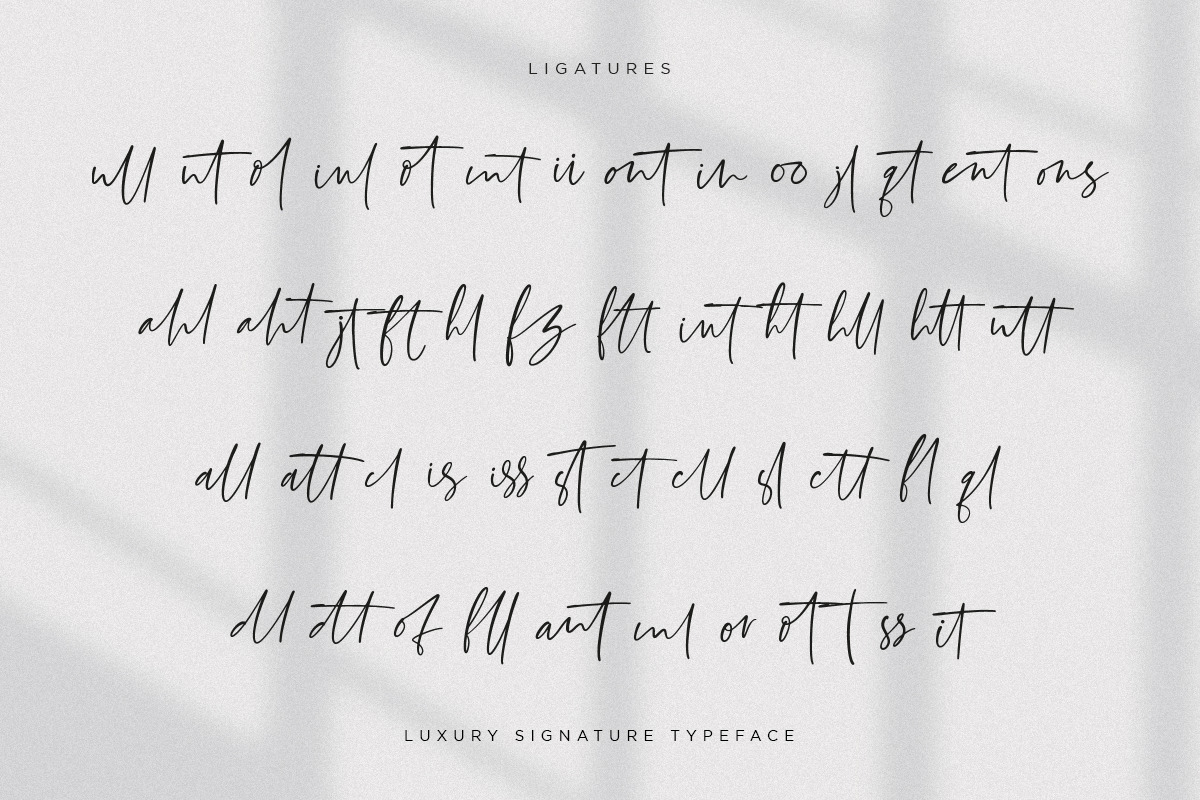 LIGATURES
ull nt ol inl ot unt ii ont in oo jl qt ent ons
ahl aht jt ft hl fz ftt int ht hll htt utt
all att cl is iss st ct cll sl ctt fl ql
dll dtt of fll ant unl or ott ss it
LUXURY SIGNATURE TYPEFACE